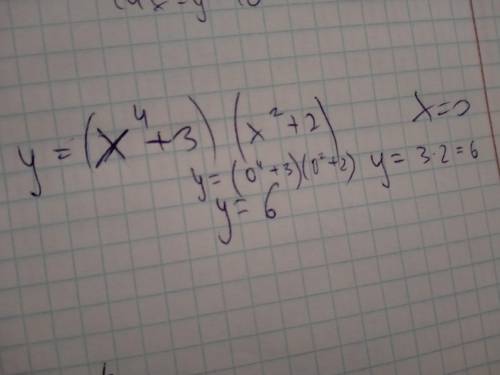 y = (x⁴+3) (x²+2) x=0
y=(0⁴+3)(0²+2) y= 3·2=6
y= 6